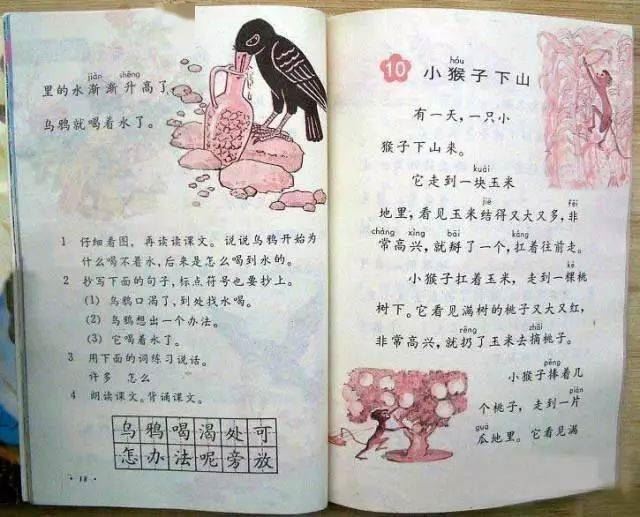 jiàn shēng
里的水渐渐升高了，
乌鸦就喝着水了。
1 仔细看图，再读读课文。说说乌鸦开始为
什么喝不着水，后来是怎么喝到水的。
2 抄写下面的句子，标点符号也要抄上。
(1) 乌鸦口渴了，到处找水喝。
(2) 乌鸦想出一个办法。
(3) 它喝着水了。
3 用下面的词练习说话。
许多 怎么
4 朗读课文。背诵课文。
乌鸦喝渴处可
怎办法呢旁放
·18·
hóu
10 小猴子下山
有一天，一只小
猴子下山来。
kuài
它走到一块玉米
jiē fēi
地里，看见玉米结得又大又多，非
cháng xìng bāi káng
常高兴，就掰了一个，扛着往前走。
kē
小猴子扛着玉米，走到一棵桃
树下。它看见满树的桃子又大又红，
rēng zhāi
非常高兴，就扔了玉米去摘桃子。
pěng
小猴子捧着几
piàn
个桃子，走到一片
guā
瓜地里。它看见满